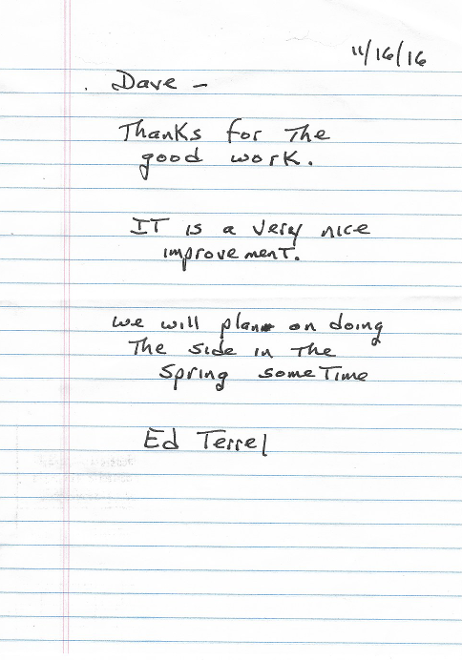 11/16/16
Dave -
Thanks for the
good work.
IT is a very nice
improvement.
we will plan on doing
the side in the
spring sometime
Ed Terrel